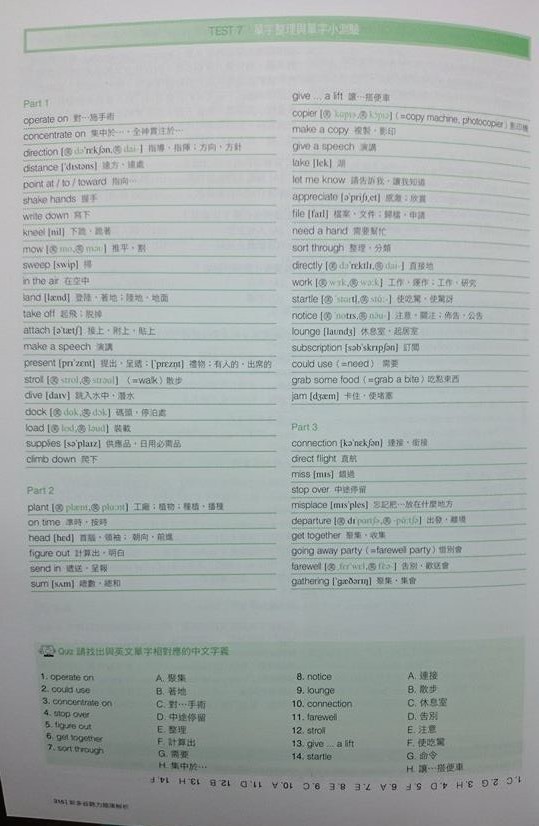 TEST 7 單字整理與單字小測驗
Part 1
operate on 對…施手術
concentrate on 集中於…，全神貫注於…
direction [美 dəˈrɛkʃən,英 daɪ-] 指導，指揮；方向，方針
distance [ˈdɪstəns] 遠方，遠處
point at / to / toward 指向…
shake hands 握手
write down 寫下
kneel [nil] 下跪，跪著
mow [美 mo,英 məu] 推平，割
sweep [swip] 掃
in the air 在空中
land [lænd] 登陸，著地；陸地，地面
take off 起飛；脫掉
attach [əˈtætʃ] 接上，附上，貼上
make a speech 演講
present [prɪˈzɛnt] 提出，呈遞；[ˈprɛznt] 禮物；有人的，出席的
stroll [美 strol,英 strəul] (=walk) 散步
dive [daɪv] 跳入水中，潛水
dock [美 dɑk,英 dɔk] 碼頭，停泊處
load [美 lod,英 ləud] 裝載
supplies [səˈplaɪz] 供應品，日用必需品
climb down 爬下
Part 2
plant [美 plænt,英 plɑːnt] 工廠；植物；種植，播種
on time 準時，按時
head [hɛd] 首腦，領袖； 朝向，前進
figure out 計算出，明白
send in 遞送，呈報
sum [sʌm] 總數，總和
give ... a lift 讓…搭便車
copier [美 ˈkɑpɪɚ,英 ˈkɔpɪə] (=copy machine, photocopier) 影印機
make a copy 複製，影印
give a speech 演講
lake [lek] 湖
let me know 請告訴我，讓我知道
appreciate [əˈpriʃɪˌet] 感激；欣賞
file [faɪl] 檔案，文件；歸檔，申請
need a hand 需要幫忙
sort through 整理，分類
directly [美 dəˈrɛktlɪ,英 daɪ-] 直接地
work [美 wɝk,英 wəːk] 工作，運作；工作，研究
startle [美 ˈstɑrtl,英 stɑː-] 使吃驚，使驚訝
notice [美 ˈnotɪs,英 nəu-] 注意，關注；佈告，公告
lounge [laundʒ] 休息室，起居室
subscription [səbˈskrɪpʃən] 訂閱
could use (=need) 需要
grab some food (=grab a bite) 吃點東西
jam [dʒæm] 卡住，使堵塞
Part 3
connection [kəˈnɛkʃən] 連接，銜接
direct flight 直航
miss [mɪs] 錯過
stop over 中途停留
misplace [mɪsˈples] 忘記把…放在什麼地方
departure [美 dɪˈpɑrtʃɚ,英 -ˈpɑːtʃə] 出發，離境
get together 聚集，收集
going away party (=farewell party) 惜別會
farewell [美 ˌfɛrˈwɛl,英 fɛə-] 告別，歡送會
gathering [ˈgæðərɪŋ] 聚集，集會
Quiz 請找出與英文單字相對應的中文字義
1. operate on
2. could use
3. concentrate on
4. stop over
5. figure out
6. get together
7. sort through
A. 聚集
B. 著地
C. 對…手術
D. 中途停留
E. 整理
F. 計算出
G. 需要
H. 集中於…
8. notice
9. lounge
10. connection
11. farewell
12. stroll
13. give ... a lift
14. startle
A. 連接
B. 散步
C. 休息室
D. 告別
E. 注意
F. 使吃驚
G. 命令
H. 讓…搭便車
1. C 2. G 3. H 4. D 5. F 6. A 7. E 8. E 9. C 10. A 11. D 12. B 13. H 14. F